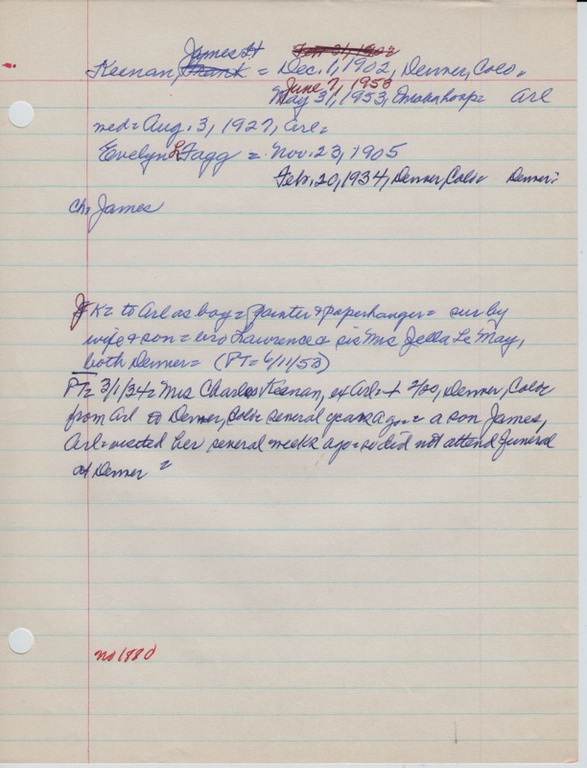 James H
Keenan Frank = Dec. 1, 1902, Denver, Colo.
June 7, 1953
May 31, 1953, Arl
med = Aug. 3, 1927, Arl =
Evelyn L Fagg = Nov. 23, 1905
Feb. 20, 1934, Denver, Colo = Denver =
Ch, James
JK = to Arl as boy = painter & paperhanger = sur by
wife & son = bro Lawrence & sis Mrs Zella Le May,
both Denver = (PT = 6/11/53)
PT = 3/1/34 = Mrs Charles Keenan, ex Arl = + 2/20, Denver, Colo =
from Arl to Denver, Colo = several years ago = a son James,
Arl = visited her several weeks ago = so did not attend funeral
at Denver =
no 1880